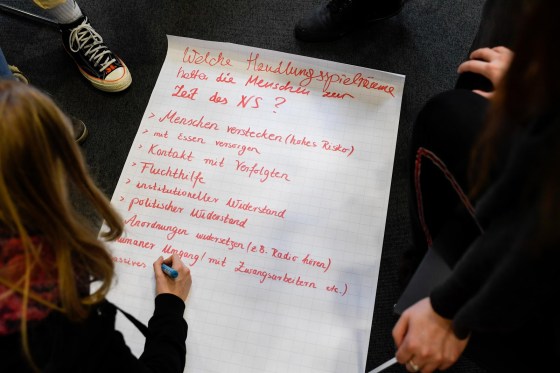 Welche Handlungsspielräume
hatte die Menschen zur
Zeit des NS?
> Menschen verstecken (hohes Risiko)
> mit Essen versorgen
> Kontakt mit Verfolgten
> Fluchthilfe
> institutioneller Widerstand
> politischer Widerstand
Anordnungen widersetzen (z.B. Radio hören)
humaner Umgang (mit Zwangsarbeitern etc.)